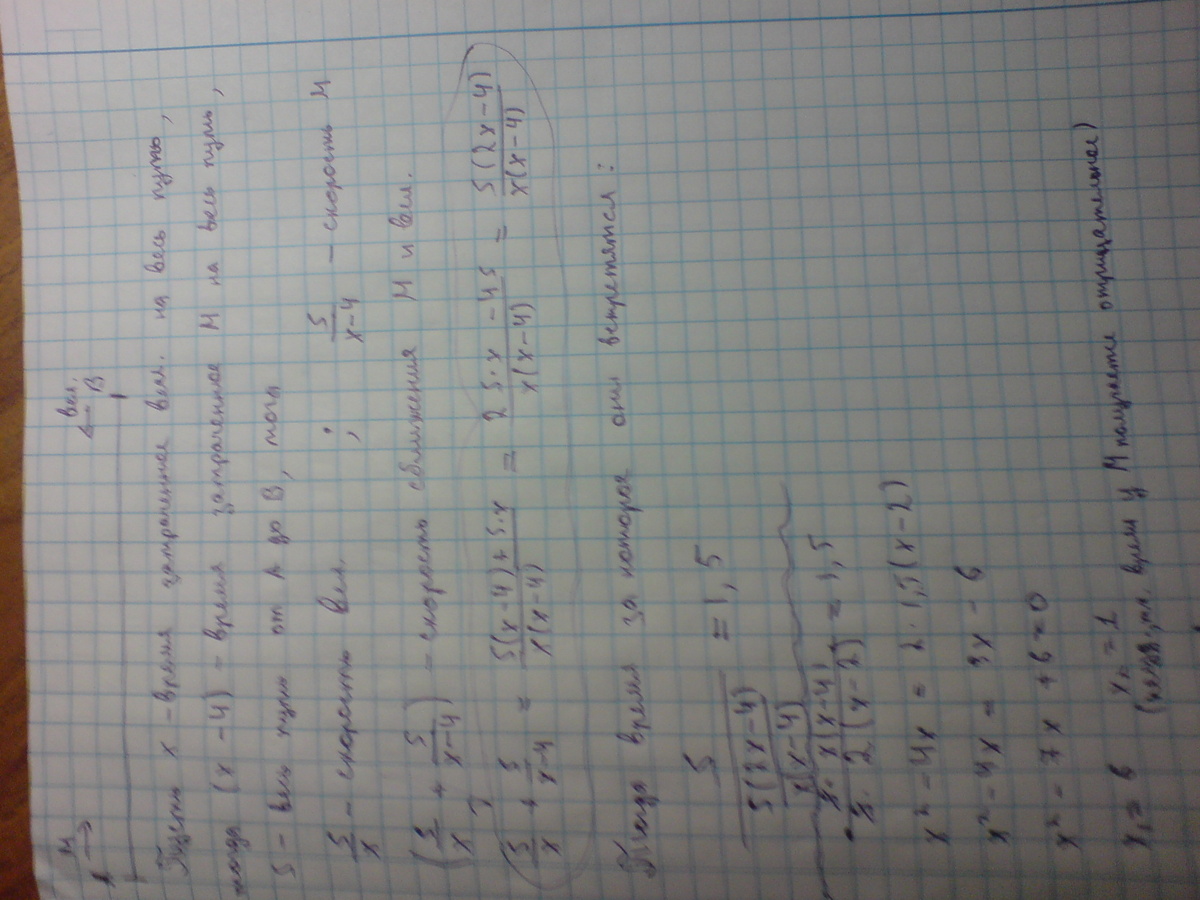 М → ← вел.
А В
Пусть x - время затраченное вел. на весь путь,
тогда (x - 4) - время затраченное М на весь путь,
S - весь путь от А до В, тогда
S/x - скорость вел. ; S/(x-4) - скорость М
(S/x + S/(x-4)) - скорость сближения М и вел.
(S/x + S/(x-4) = (S(x-4) + S·x)/(x(x-4)) = (2S·x - 4S)/(x(x-4)) = S(2x-4)/(x(x-4))
Тогда время за которое они встретятся:
S/(S(2x-4)/(x(x-4))) = 1,5
S·x(x-4)/(S·2(x-2)) = 1,5
x² - 4x = 2·1,5(x-2)
x² - 4x = 3x - 6
x² - 7x + 6 = 0
x₁ = 6 x₂ = 1
время у М получается отрицательное)